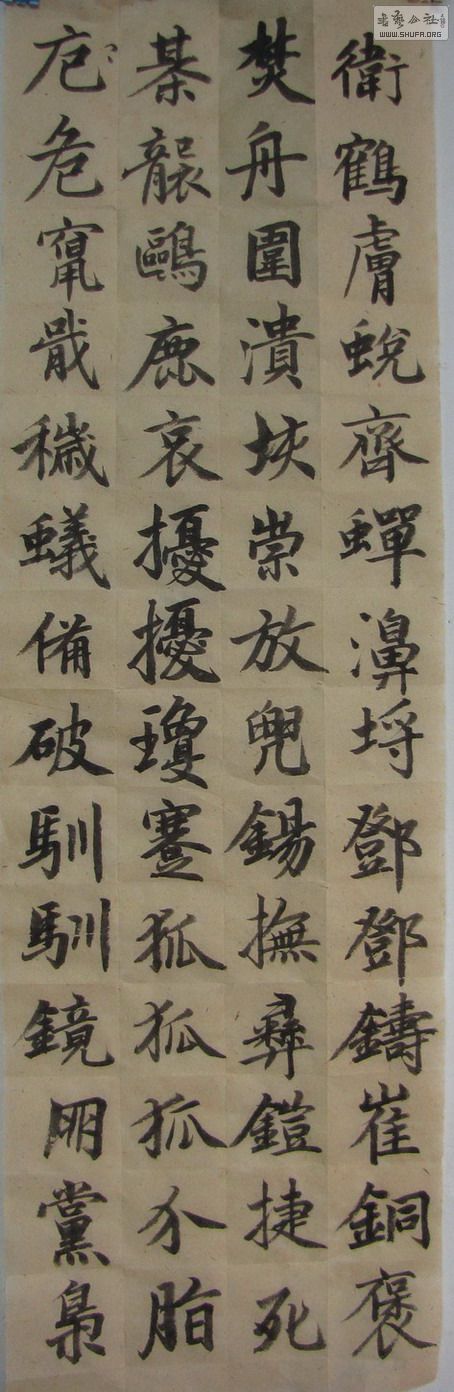 衛鶴膚蛻齊蟬濞埒鄧鄧鑄崔銅褒
焚舟圍潰垓崇放兕錫撫彝鎧捷死
棊龍鷗鹿哀擾擾瓊蹇狐狐狐介脂
危竄戢穢蟻備破馴馴鏡朙黨梟
書藝公社
WWW.SHUFA.ORG